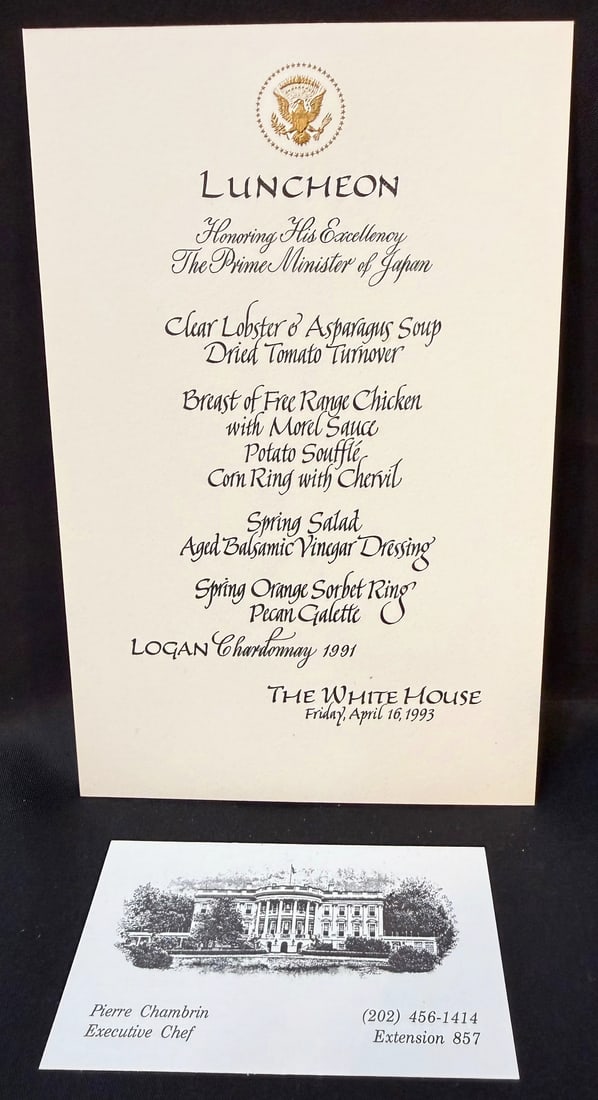 LUNCHEON
Honoring His Excellency
The Prime Minister of Japan
Clear Lobster & Asparagus Soup
Dried Tomato Turnover
Breast of Free Range Chicken
with Morel Sauce
Potato Soufflé
Corn Ring with Chervil
Spring Salad
Aged Balsamic Vinegar Dressing
Spring Orange Sorbet Ring
Pecan Galette
LOGAN Chardonnay 1991
THE WHITE HOUSE
Friday, April 16, 1993
Pierre Chambrin
Executive Chef
(202) 456-1414
Extension 857